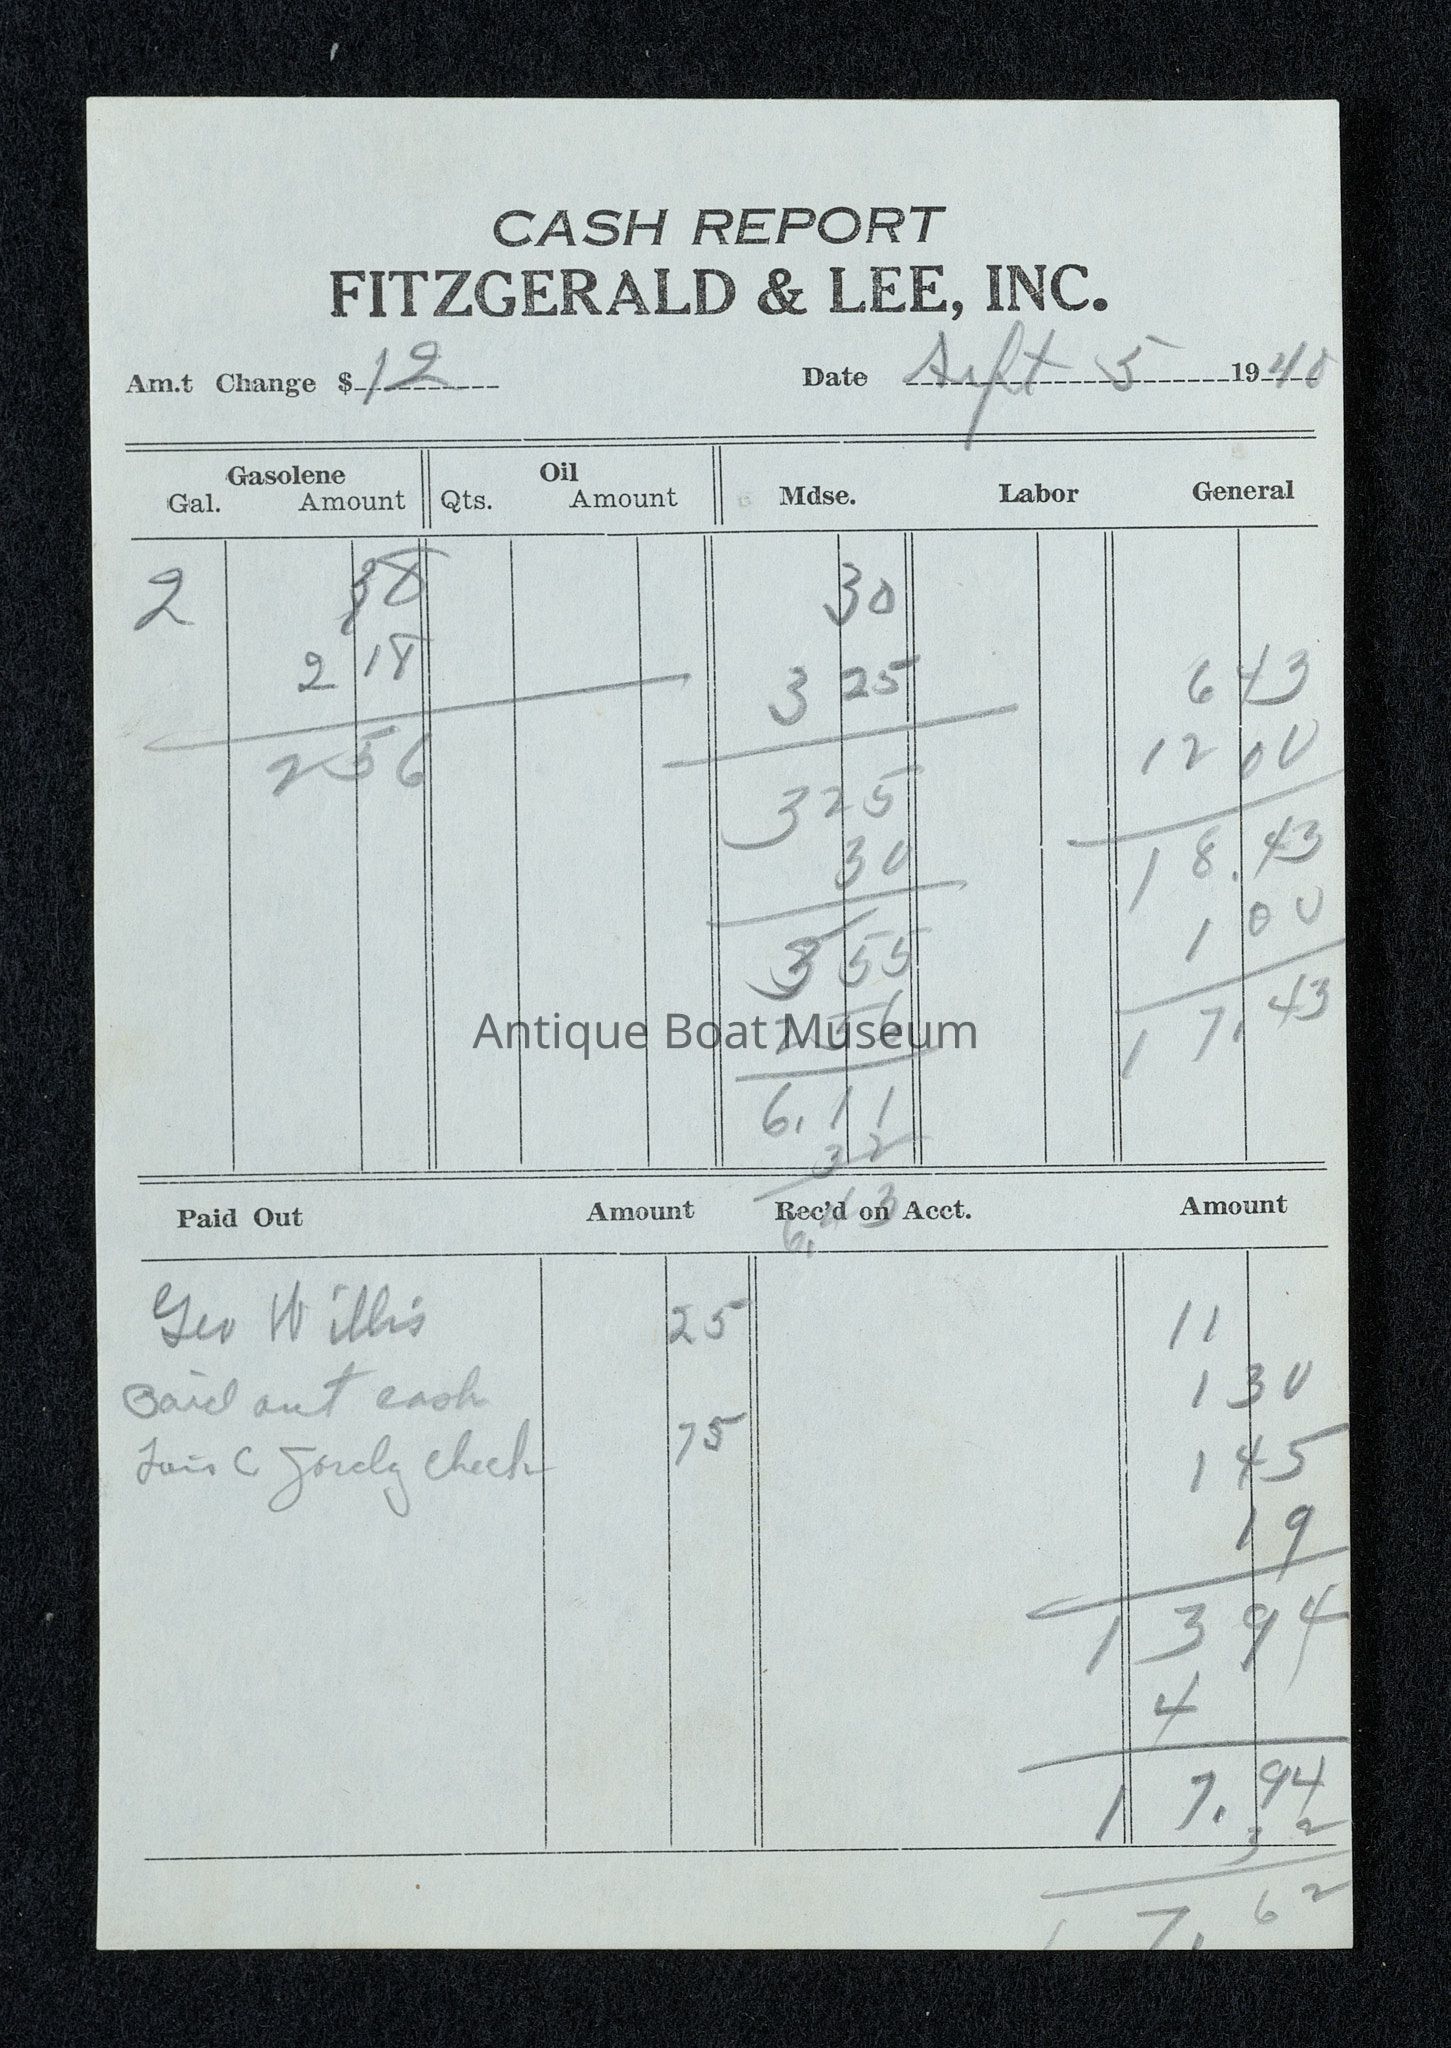 CASH REPORT
FITZGERALD & LEE, INC.
Am.t Change $ 12 Date Sept 5 1940
Gasolene Oil
Gal. Amount Qts. Amount Mdse. Labor General
2 38 30
2 18 3 25 6 43
2 56 12 00
3 25
30 18.43
1 00
3 55
2 56 17.43
Antique Boat Museum
6.11
32
6.43
Paid Out Amount Rec'd on Acct. Amount
Geo Willis 25 11
Paid out cash 1 30
check 75 1 45
19
13 94
4
17.94
32
17.62